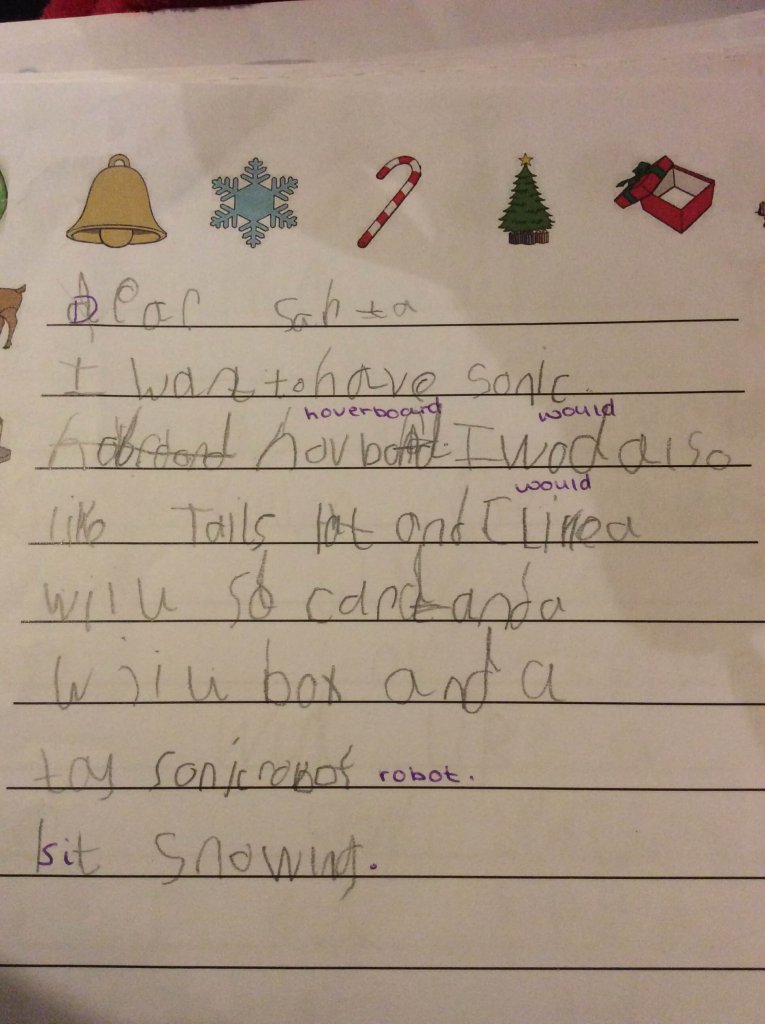 Dear santa
I want to have sonic
hoverboard would
hovbord I wod also
would
like Tails hat and I Like a
wiiu sd card and a
wiiu box and a
toy sonic robot robot.
Is it snowing.